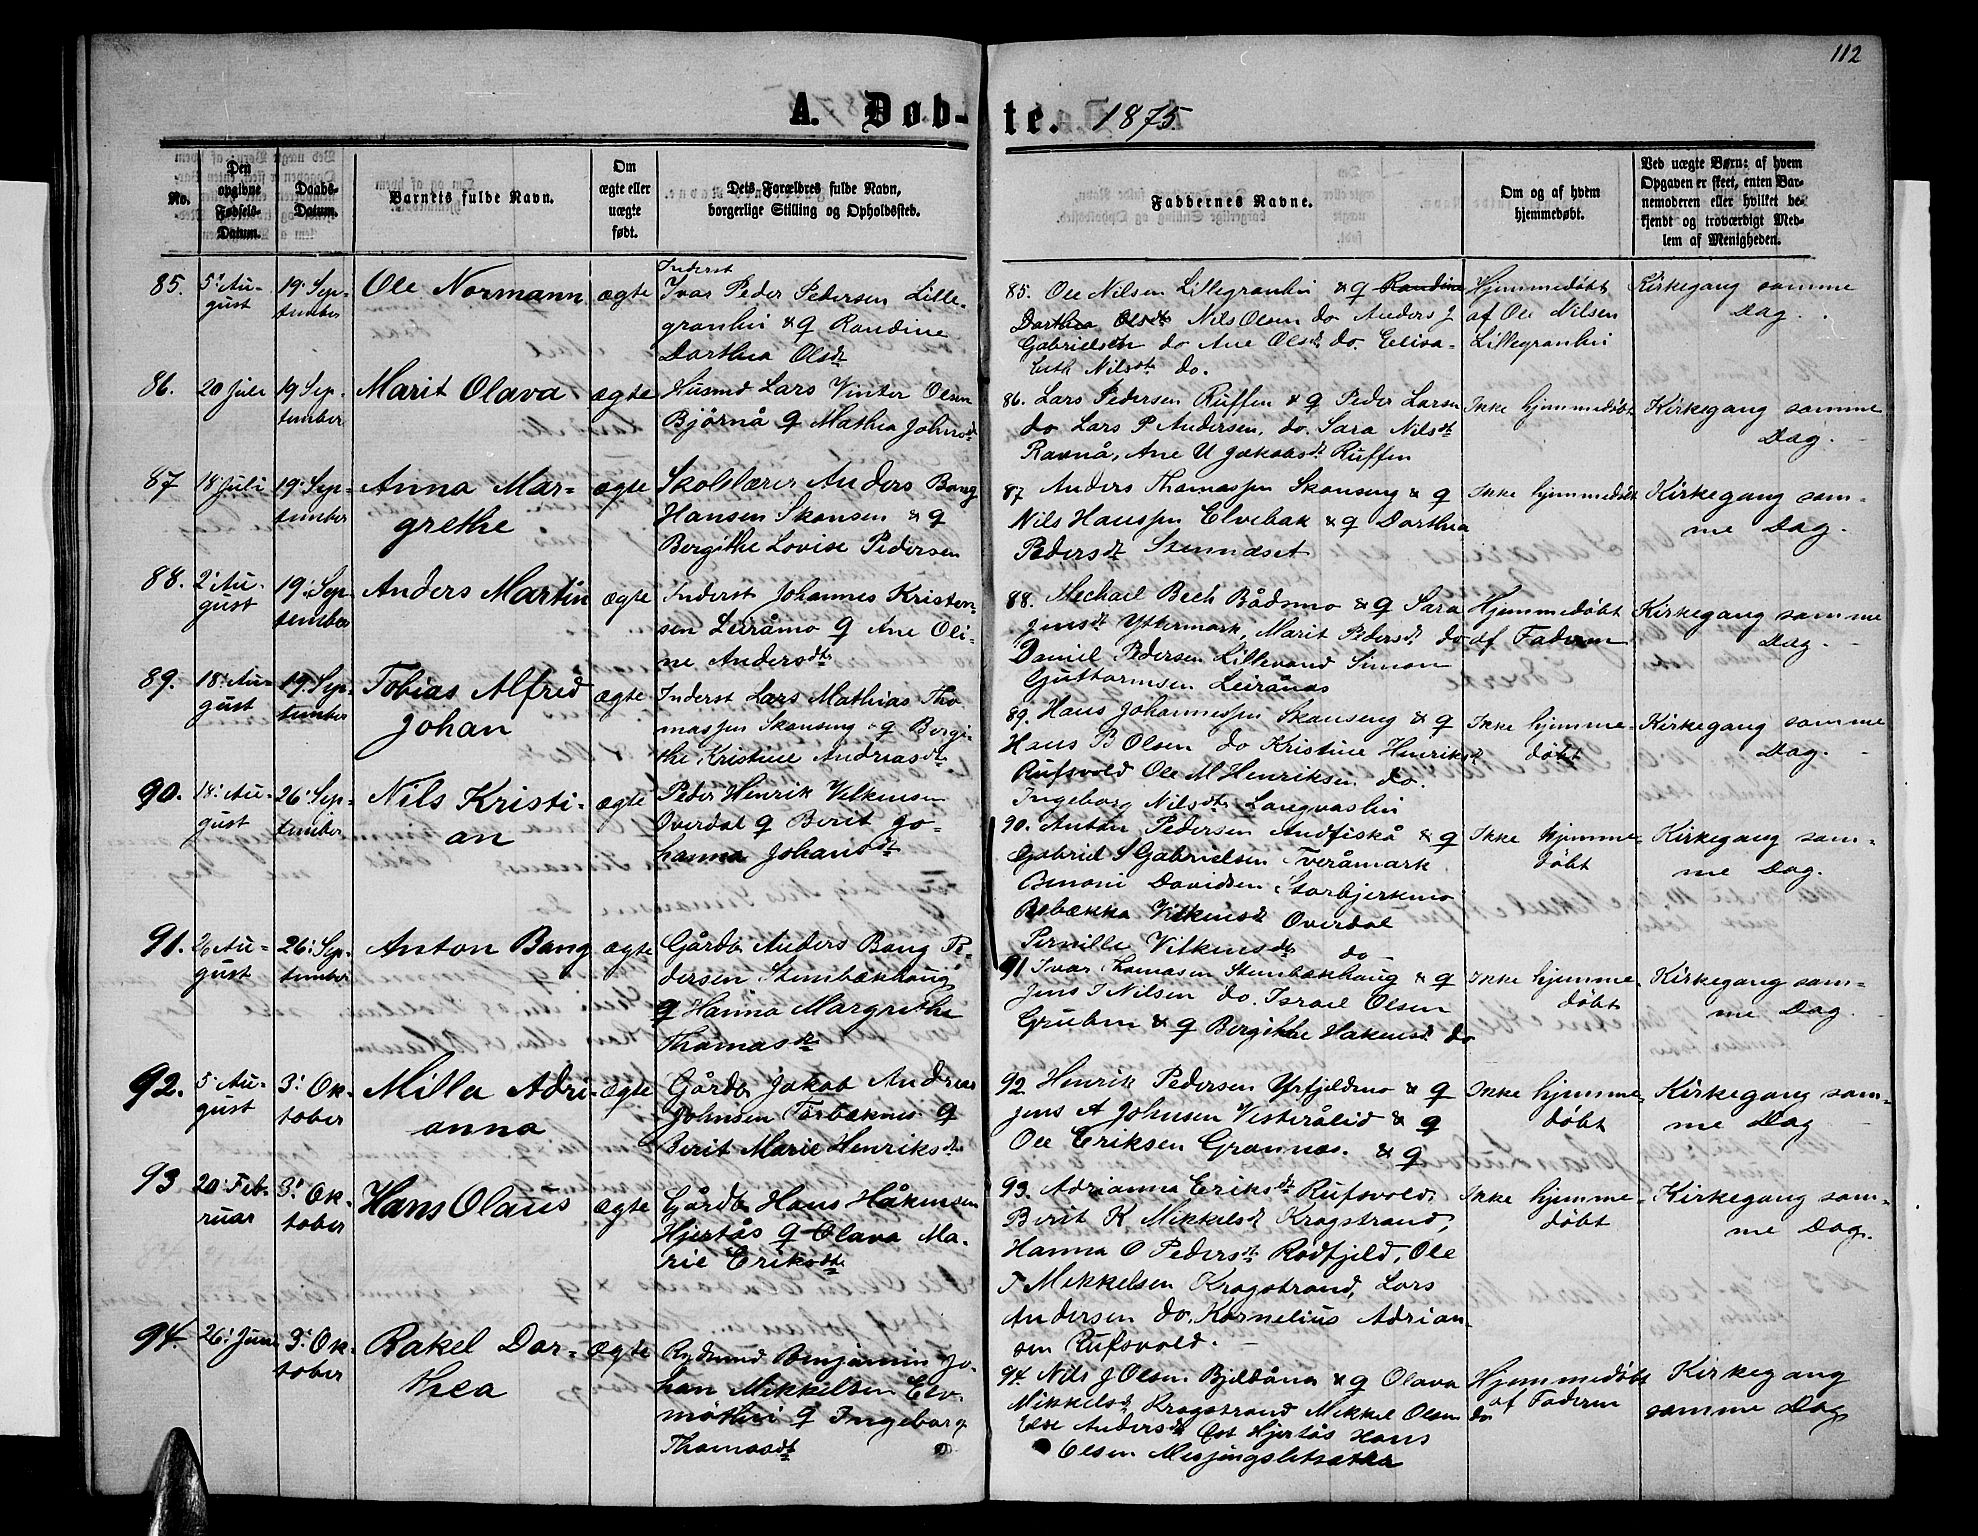 112
A. Døb-te. 1875
No.
Den opgivne Fødsels-Datum.
Daabs-Datum.
Barnets fulde Navn.
Om ægte eller uægte født.
Dets Forældres fulde Navn, borgerlige Stilling og Opholdssted.
Faddernes Navne.
Om og af hvem hjemmedøbt.
Ved uægte Børn: af hvem Opgaven er skeet, enten Barnemoderen eller hvilket bekjendt og troværdigt Medlem af Menigheden.
85. 5' Au-
gust
19' Sep-
tember
Ole Normann
ægte
Inderst
Ivar Peder Pedersen Lille-
granlin & q Randine
Dorthea Olsdt
85. Ole Nilsen Lillegranlin & q Randine
Dorthea Olsdt Nils Olsen do Anders J
Gabrielsen do Ane Olsdt do. Eliva-
Nilsdt do.
Hjemmedøbt
af Ole Nilsen
Lillegranlin
Kirkegang samme
Dag.
86. 20 Juli
19 Sep-
tember
Marit Olava
ægte
Husmd Lars Vinter Olsen
Bjørnå q Mathea Johnsdt
86. Lars Pedersen Ruffen & q Peder Larsen
do Lars P Andersen, do. Sara Nilsdt
Ravnå, Ane U Jakobsdt Ruffen
Ikke hjemmedøbt
Kirkegang samme
Dag.
87 18' Juli
19' Sep-
tember
Anna Mar-
grethe
ægte
Skolelærer Anders Bang
Hansen Skansen & q
Bergithe Lovise Pedersen
87 Anders Thomassen Skanseng & q
Nils Hanssen Elvebak & q Dorthea
Pedersdt Stennæset
Ikke hjemmedøbt
Kirkegang sam-
me Dag.
88. 2' Au-
gust
19' Sep-
tember
Anders Martin
ægte
Inderst Johannes Kristen-
sen Leiråmo q Ane Oli-
ne Andersdt
88. Mechael Bech Bådsmo & q Sara
Jensdt Yttermark, Marit Pedersdt do
Daniel Pedersen Lillevand Simon
Guttormsen Leirånæs
Hjemmedøbt
af Faderen
Kirkegang samme
Dag.
89. 18' Au-
gust
19' Sep-
tember
Tobias Alfred
Johan
ægte
Inderst Lars Mathias Tho-
massen Skanseng & q Bergi-
the Kristine Andreasdt
89. Hans Johannessen Skanseng & q
Hans B Olsen do Kristine Henriksdt
Rufsvold Ole M Henriksen do.
Ingeborg Nilsdt Langvaslin
Ikke hjemme-
døbt
Kirkegang samme
Dag.
90. 18' Au-
gust
26' Sep-
tember
Nils Kristi-
an
ægte
Peder Henrik Vilkensen
Overdal q Berit Jo-
hanna Johansdt
90. Anton Pedersen Andfiskå & q
Gabriel S Gabrielsen Tveråmark
Benoni Davidsen Storbjerkmo
Rebækka Vilkensdt Overdal
Pernille Vilkensdt do
Ikke hjemme-
døbt
Kirkegang sam-
me Dag.
91. 26 Au-
gust
26' Sep-
tember
Anton Bang
ægte
Gårdb Anders Bang Pe-
dersen Stenbækhaug
q Hanna Margrethe
Thomasdt
91 Ivar Thomasen Stenbækhaug & q
Jens I Nilsen do. Israel Olsen
Gruben & q Bergithe Hakensdt do
Ikke hjemme-
døbt
Kirkegang sam-
me Dag.
92. 5' Au-
gust
3' Ok-
tober
Milla Adri-
anna
ægte
Gårdb. Jakob Andreas
Johnsen Forbæknes q
Berit Marie Henriksdt
92 Henrik Pedersen Yrfjeldmo & q
Jens A Johnsen Vesterålid & q
Ole Eriksen Grønnæs. & q
Ikke hjemme-
døbt
Kirkegang sam-
me Dag
93 20' Feb-
ruar
3' Ok-
tober
Hans Olaus
ægte
Gårdb Hans Håkensen
Hjertås q Olava Ma-
rie Eriksdt
93. Adrianna Eriksdt Rufsvold.
Berit K Mikkelsdt Kragstrand,
Hanna O Pedersdt Rødfjeld, Ole
T Mikkelsen Kragstrand, Lars
Andersen do. Kornelius Adrian-
sen Rufsvold.
Ikke hjemme-
døbt
Kirkegang sam-
me Dag.
94. 26' Juni
3' Ok-
tober
Rakel Dor-
thea
ægte
Rydsmd Benjamin Jo-
han Mikkelsen Elv-
møthei q Ingeborg
Thomasdt
94. Nils J Olsen Bjeldånes & q Olava
Mikkelsdt Kragstrand Mikkel Olsen do
Else Andersdt Hjertås Hans
Olsen
Hjemmedøbt
af Faderen
Kirkegang
samme Dag